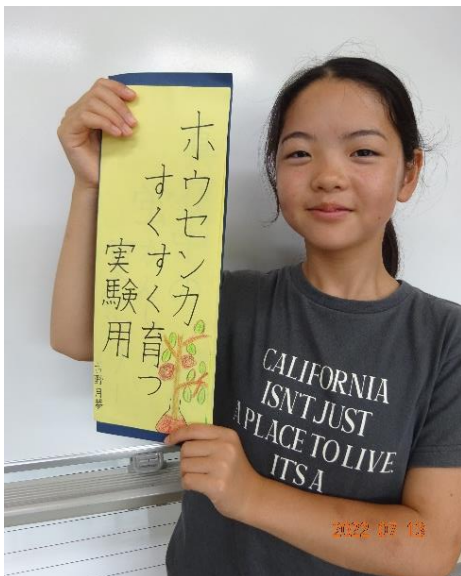 ホウセンカ
すくすく育つ
実験用
CALIFORNIA
ISN'T JUST
A PLACE TO LIVE
IT'S A
2022 07 13